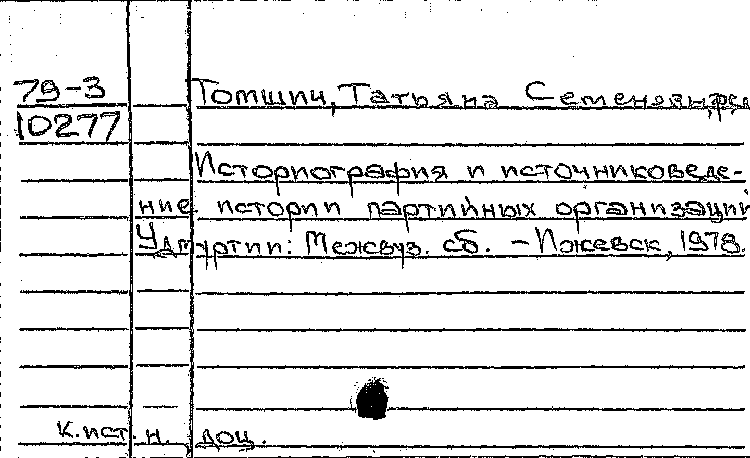 79-3 Томшич, Татьяна Семеновна, ред
10277
Историография и источниковеде-
ние истории партийных организаций
Удмуртии: Межвуз. сб. - Ижевск, 1978.
к. ист. н. доц.